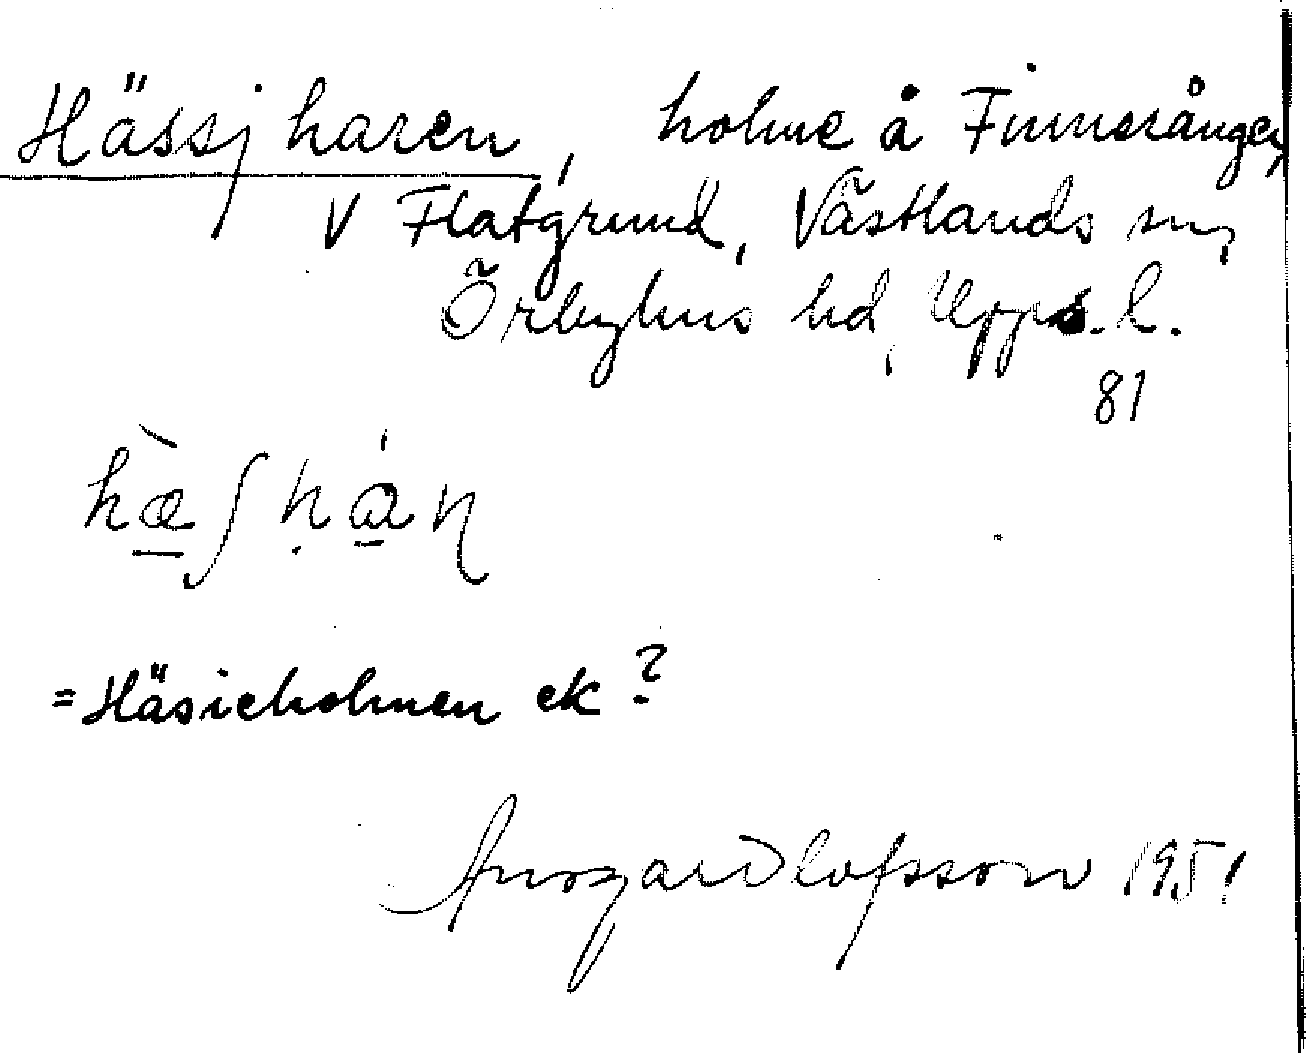 Hässjharen, holme å Finnerånger,
V Flatgrund, Västlands sn,
Örbyhus hd, Upps. l.
81
hæ̀ʃḥa̍ṇ
=Häsieholmen ek?
Olofsson 1951